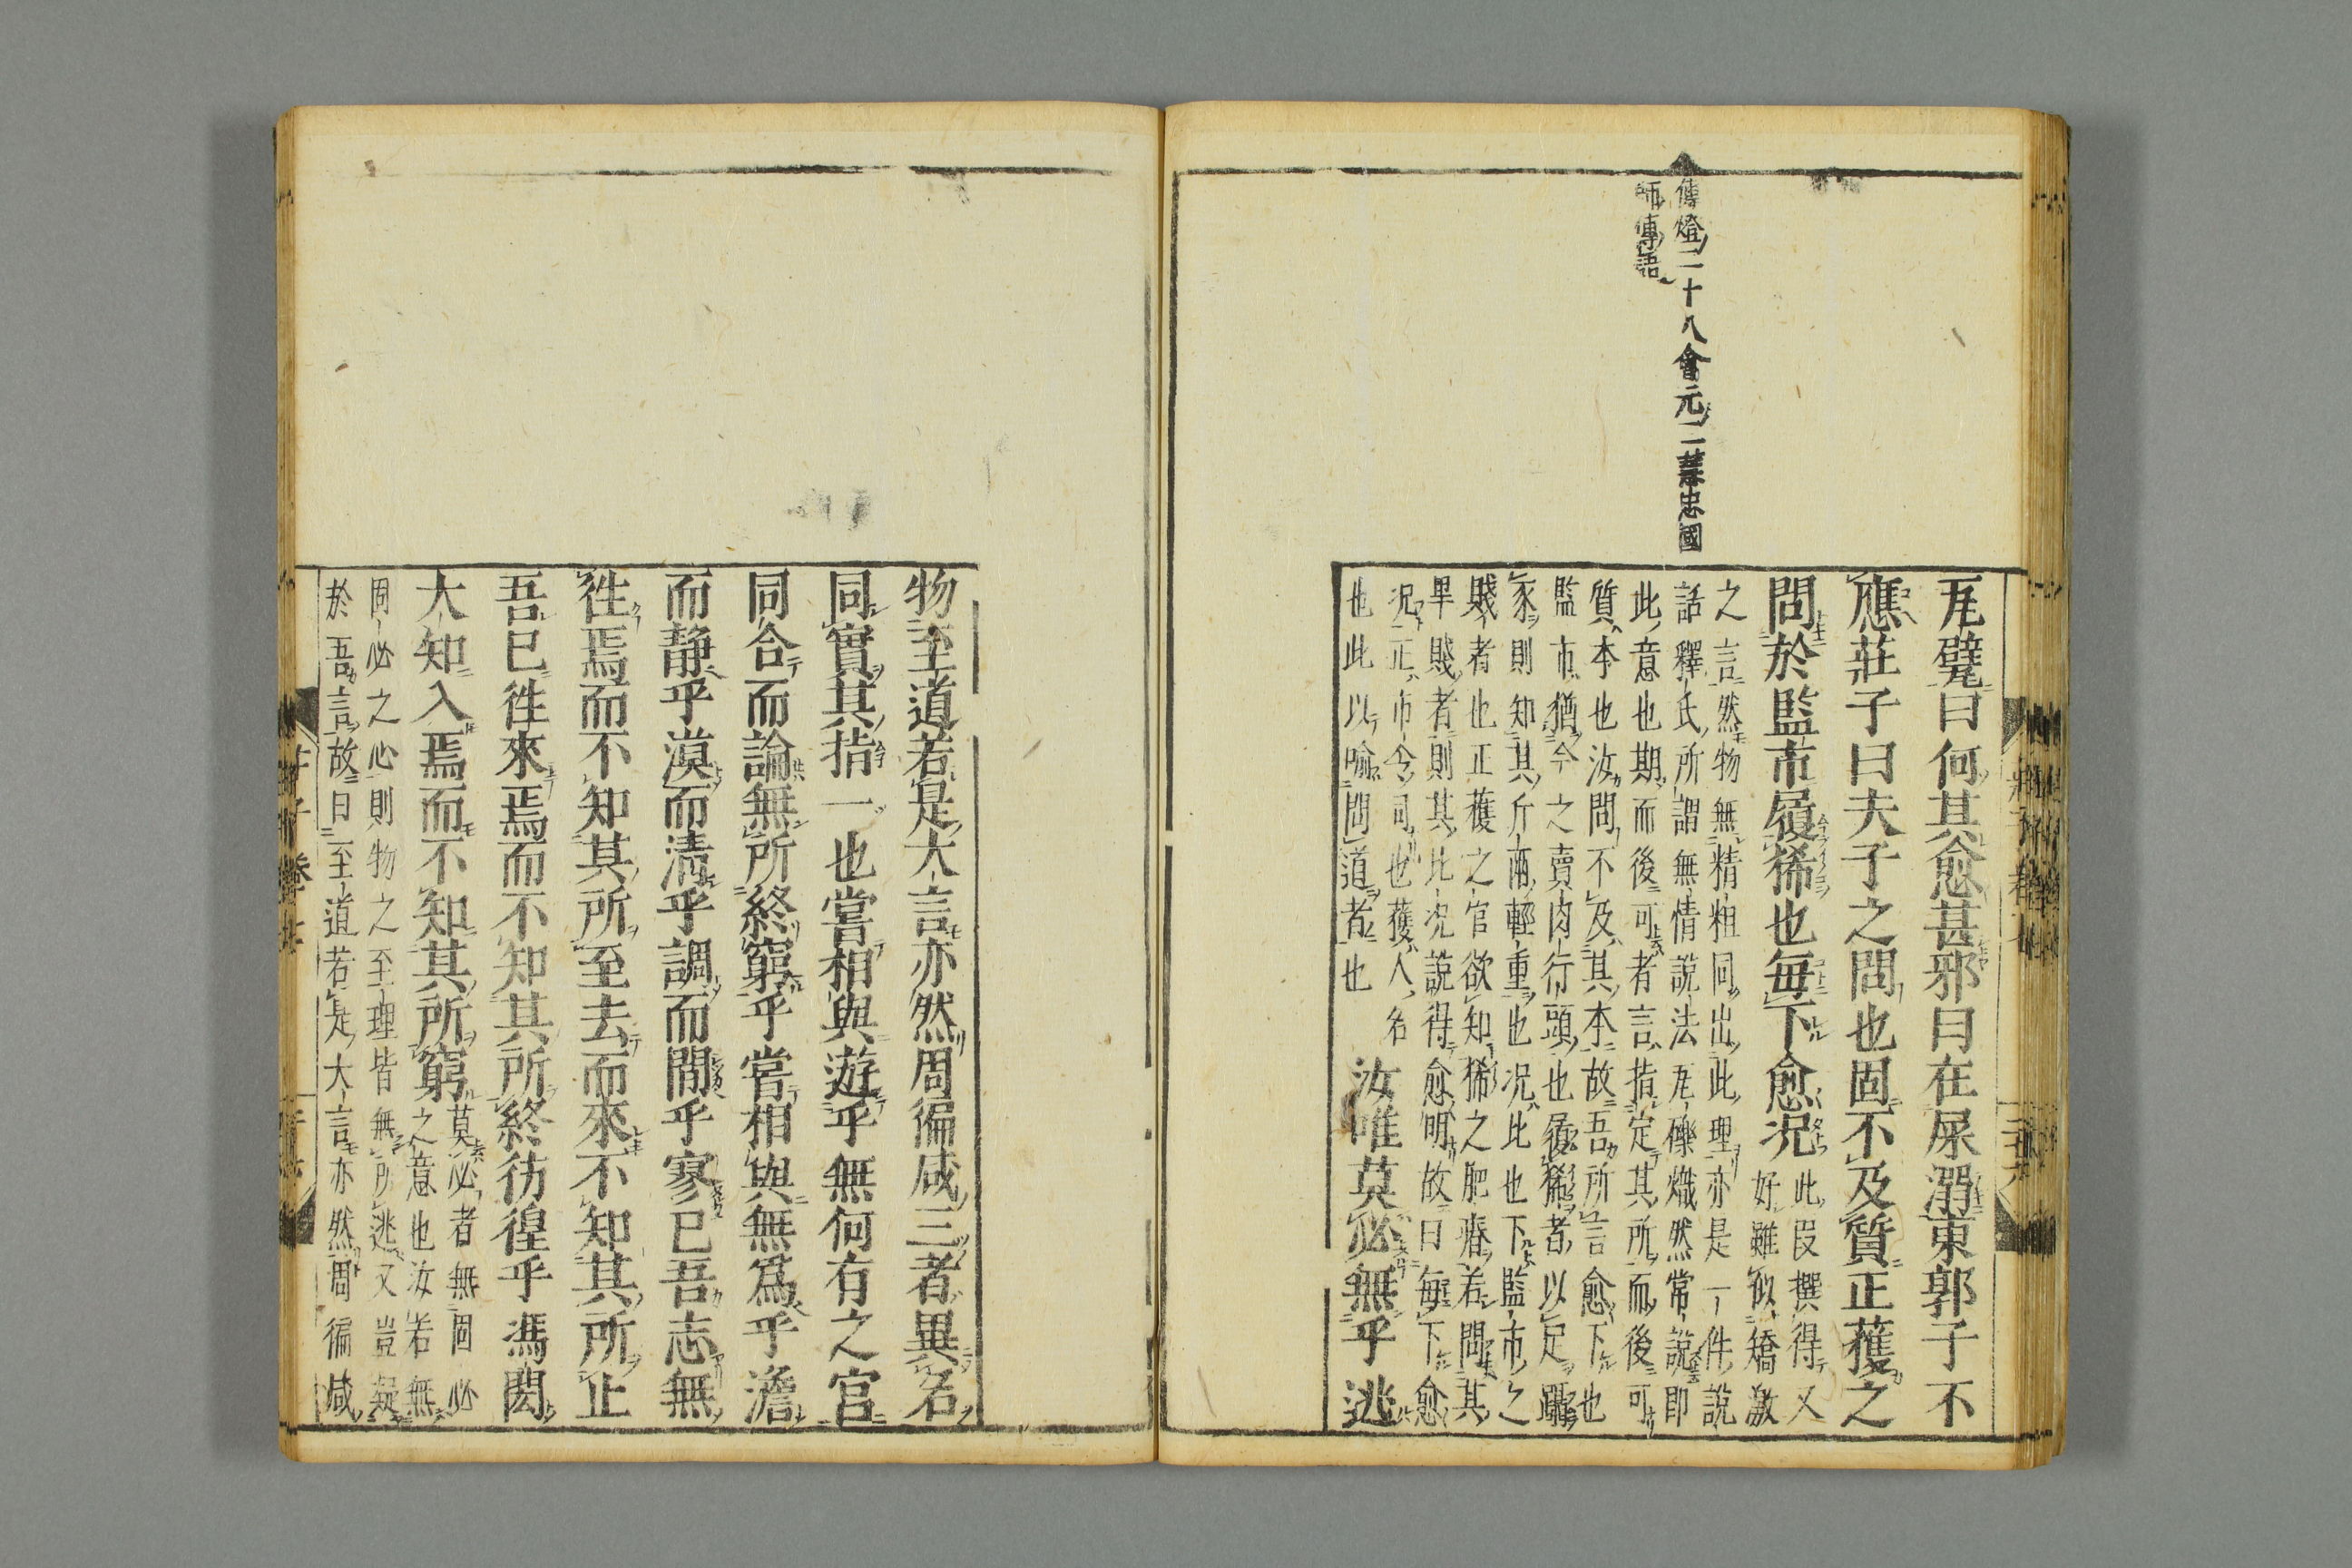 傳燈二十八會元二慧忠國
師傳語
瓦甓曰何其愈甚邪曰在屎溺東郭子不
應莊子曰夫子之問也固不及質正獲之
問於監市履狶也每下愈況
此段撰得又
好雖似矯激
之言然物無精粗同出此理亦是一件說
話釋氏所謂無情說法瓦礫熾然常說即
此意也期而後可者言指定其所而後可
質本也汝問不及其本故吾所言愈下也
監市猶今之賣肉行頭也履狶者以足躡
豕則知其斤兩輕重也況比也下監市之
賤者也正獲之官欲知狶之肥瘠若問其
畢賤者則其比況說得愈明故曰每下愈
況正市令司也獲人名
也此以喻問道者也
汝唯莫必無乎逃
物至道若是大言亦然周徧咸三者異名
同實其指一也嘗相與遊乎無何有之宮
同合而論無所終窮乎嘗相與無爲乎澹
而静乎漠而清乎調而閒乎寥已吾志無
徃焉而不知其所至去而來不知其所止
吾已徃來焉而不知其所終彷徨乎馮閎
大知入焉而不知其所窮
莫必者無固必
之意也汝若無
固必之心則物之至理皆無所逃又豈疑
於吾言故曰至道若是大言亦然周徧咸